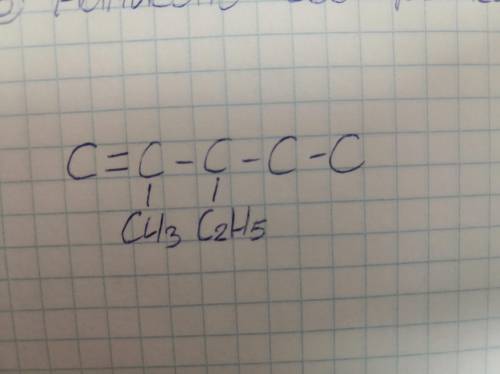 C=C-C-C-C
CH3 C2H5